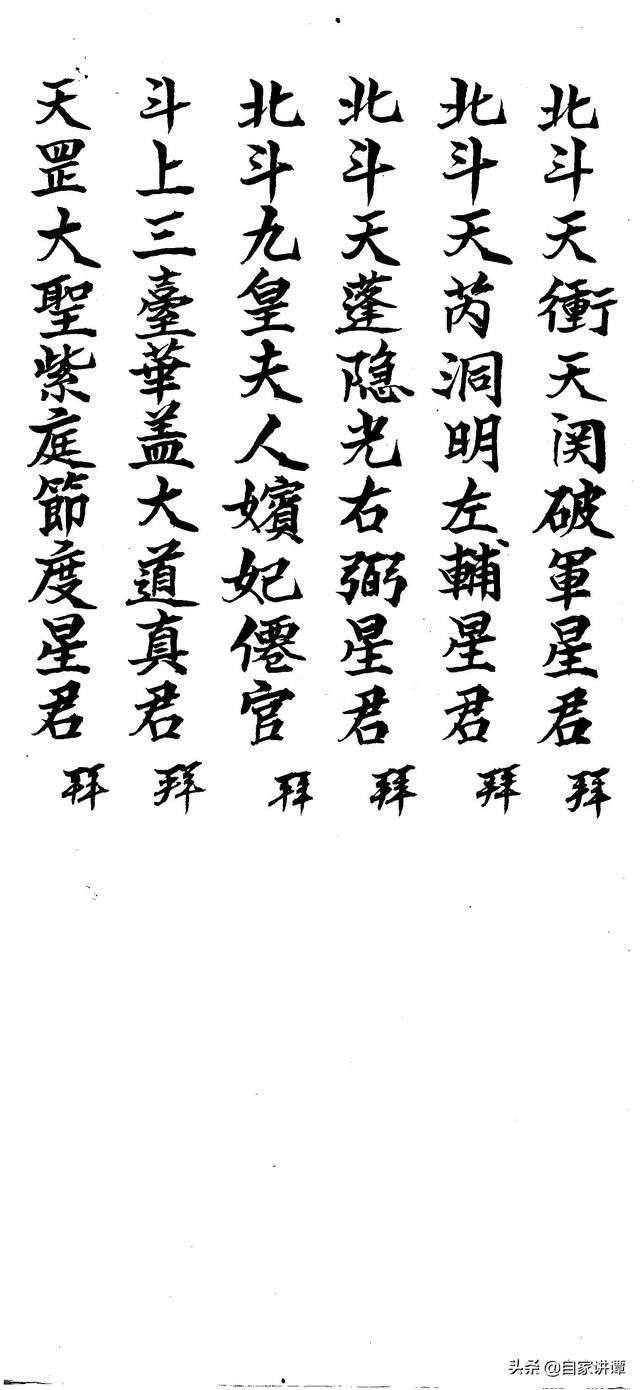 北斗天衝天関破軍星君 拜
北斗天芮洞明左輔星君 拜
北斗天蓬隐光右弼星君 拜
北斗九皇夫人嬪妃僊官 拜
斗上三臺華盖大道真君 拜
天罡大聖紫庭節度星君 拜
头条 @自家讲谭